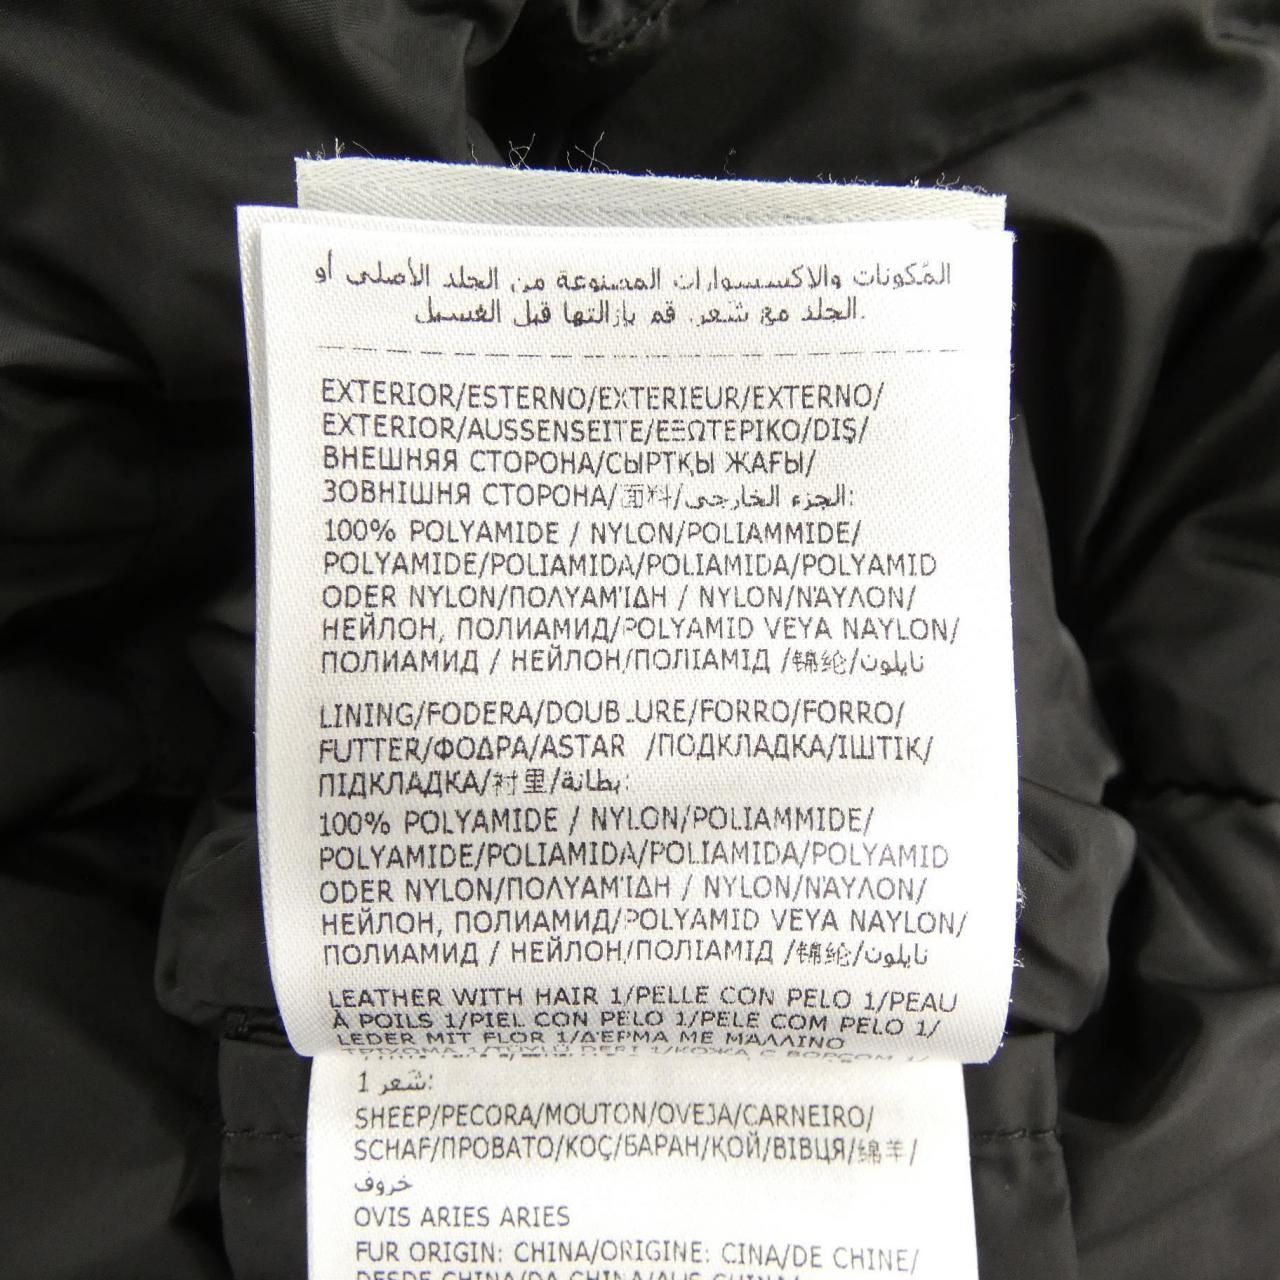 المكونات والاكسسوارات المصنوعة من الجلد الأصلي أو
الجلد مع شعر، قم بإزالتها قبل الغسيل.
EXTERIOR/ESTERNO/EXTERIEUR/EXTERNO/
EXTERIOR/AUSSENSEITE/ΕΞΩΤΕΡΙΚΟ/DIŞ/
ВНЕШНЯЯ СТОРОНА/СЫРТҚЫ ЖАҒЫ/
ЗОВНІШНЯ СТОРОНА/面料/الجزء الخارجي:
100% POLYAMIDE / NYLON/POLIAMMIDE/
POLYAMIDE/POLIAMIDA/POLIAMIDA/POLYAMID
ODER NYLON/ΠΟΛΥΑΜΊΔΗ / NYLON/ΝΆΥΛΟΝ/
НЕЙЛОН, ПОЛИАМИД/POLYAMID VEYA NAYLON/
ПОЛИАМИД / НЕЙЛОН/ПОЛІАМІД /锦纶/نايلون
LINING/FODERA/DOUBLURE/FORRO/FORRO/
FUTTER/ΦΟΔΡΑ/ASTAR /ПОДКЛАДКА/ІШТІК/
ПІДКЛАДКА/衬里/بطانة:
100% POLYAMIDE / NYLON/POLIAMMIDE/
POLYAMIDE/POLIAMIDA/POLIAMIDA/POLYAMID
ODER NYLON/ΠΟΛΥΑΜΊΔΗ / NYLON/ΝΆΥΛΟΝ/
НЕЙЛОН, ПОЛИАМИД/POLYAMID VEYA NAYLON/
ПОЛИАМИД / НЕЙЛОН/ПОЛІАМІД /锦纶/نايلون
LEATHER WITH HAIR 1/PELLE CON PELO 1/PEAU
À POILS 1/PIEL CON PELO 1/PELE COM PELO 1/
LEDER MIT FLOR 1/ΔΈΡΜΑ ΜΕ ΜΆΛΛΙΝΟ
ΤΡΊΧΩΜΑ 1/TÜYLÜ DERİ 1/КОЖА С ВОРСОМ 1/
شعر 1:
SHEEP/PECORA/MOUTON/OVEJA/CARNEIRO/
SCHAF/ΠΡΟΒΑΤΟ/KOÇ/БАРАН/ҚОЙ/ВІВЦЯ/绵羊/
خروف
OVIS ARIES ARIES
FUR ORIGIN: CHINA/ORIGINE: CINA/DE CHINE/
DESDE CHINA/DA CHINA/AUS CHINA/